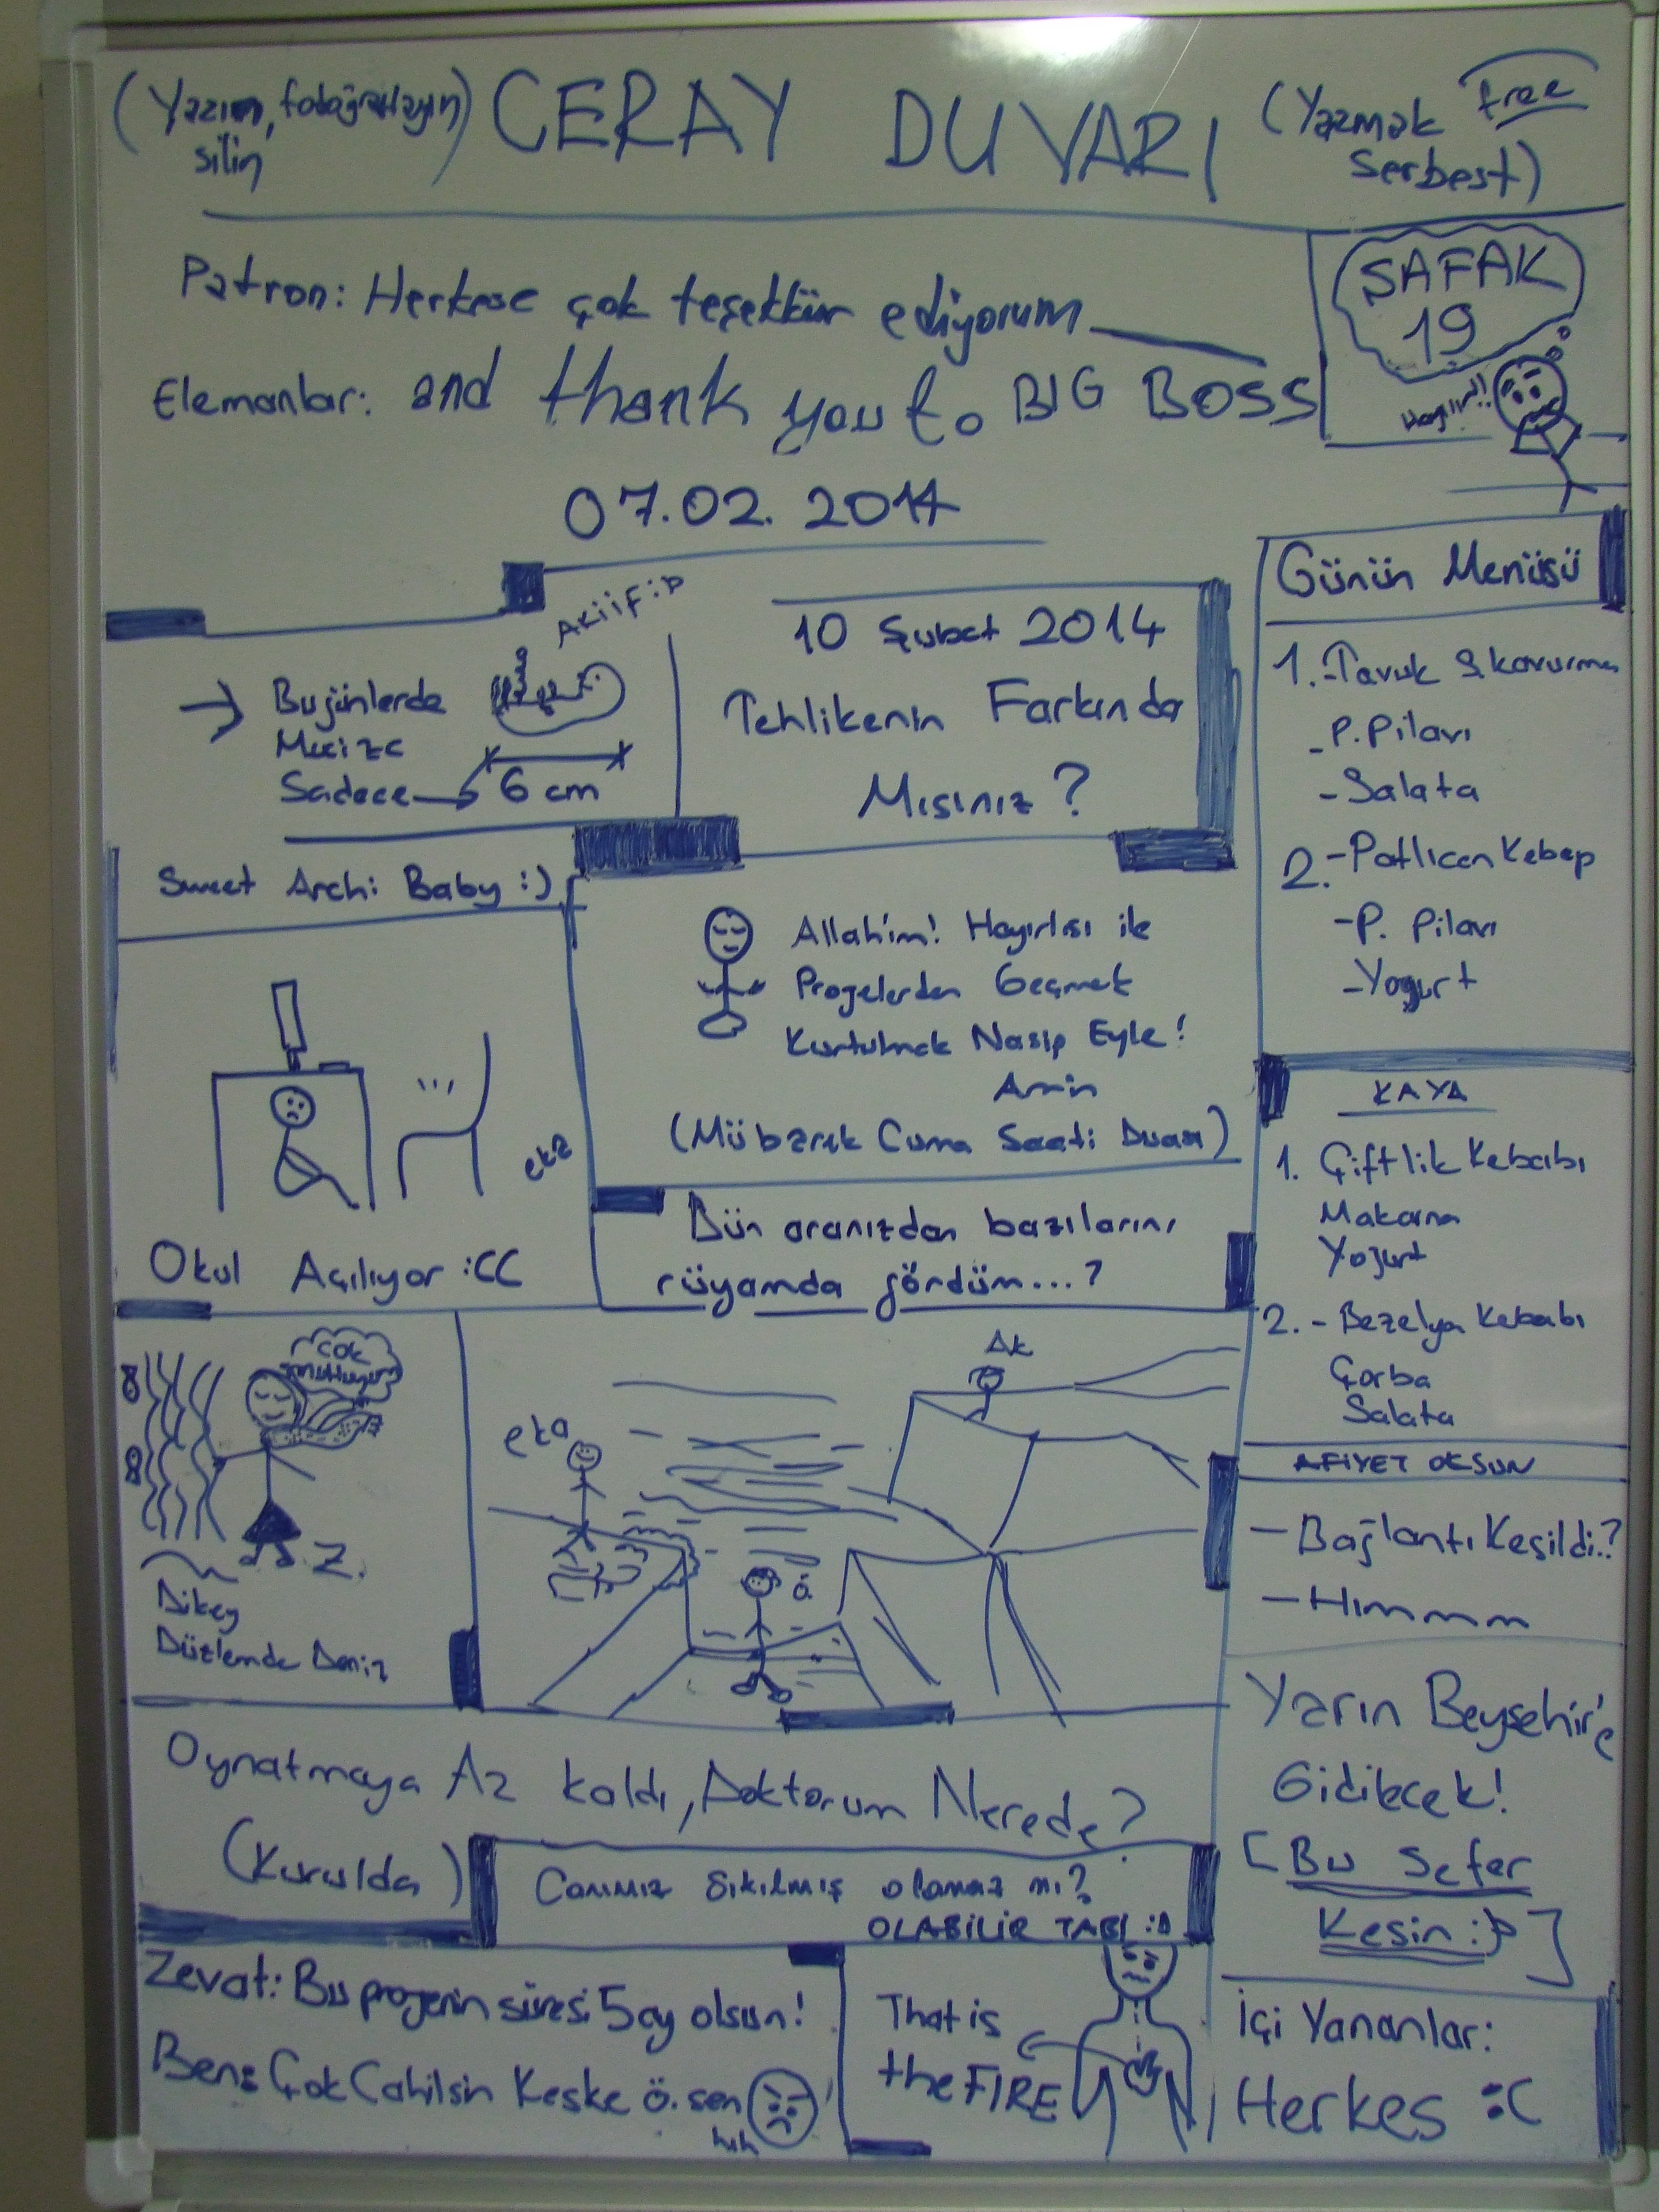 (Yazın, fotoğraflayın)
silin
CERAY DUVARI
(Yazmak free
Serbest)
Patron: Herkese çok teşekkür ediyorum
Elemanlar: and thank you to BIG BOSS
07.02.2014
ŞAFAK
19
Hayır!!
AKiiF:D
→ Bugünlerde
Sadece → 6 cm
Sweet Archi Baby :)
10 Şubat 2014
Tehlikenin Farkında
Mısınız ?
Allah'ım! Hayırlısı ile
Projelerden Geçmek
Kurtulmak Nasip Eyle!
Amin
(Mübarek Cuma Saati Duası)
eka
Okul Açılıyor :CC
Dün aranızdan bazılarını
rüyamda gördüm...?
Günün Menüsü
1.-Tavuk Ş.kavurma
-P.Pilavı
-Salata
2.-Patlıcan Kebap
-P. Pilavı
-Yogurt
KAYA
1. Çiftlik Kebabı
Makarna
Yoğurt
2.-Bezelya Kebabı
Çorba
Salata
AFİYET OLSUN
-Bağlantı Kesildi.?
-Hımmm
çok
Z.
Dikey
Düzlemde Deniz
eka
AK
ö
Oynatmaya Az kaldı, Doktorum Nerede?
(Kurulda)
Canımız Sıkılmış olamaz mı?
OLABİLİR TABİ :D
Yarın Beyşehir'e
Gidilecek!
[Bu Sefer
Kesin :P]
Zevat: Bu projenin süresi 5 ay olsun!
Ben: Çok Cahilsin Keşke ö.sen
hıh
That is
the FIRE
İçi Yananlar:
Herkes :C